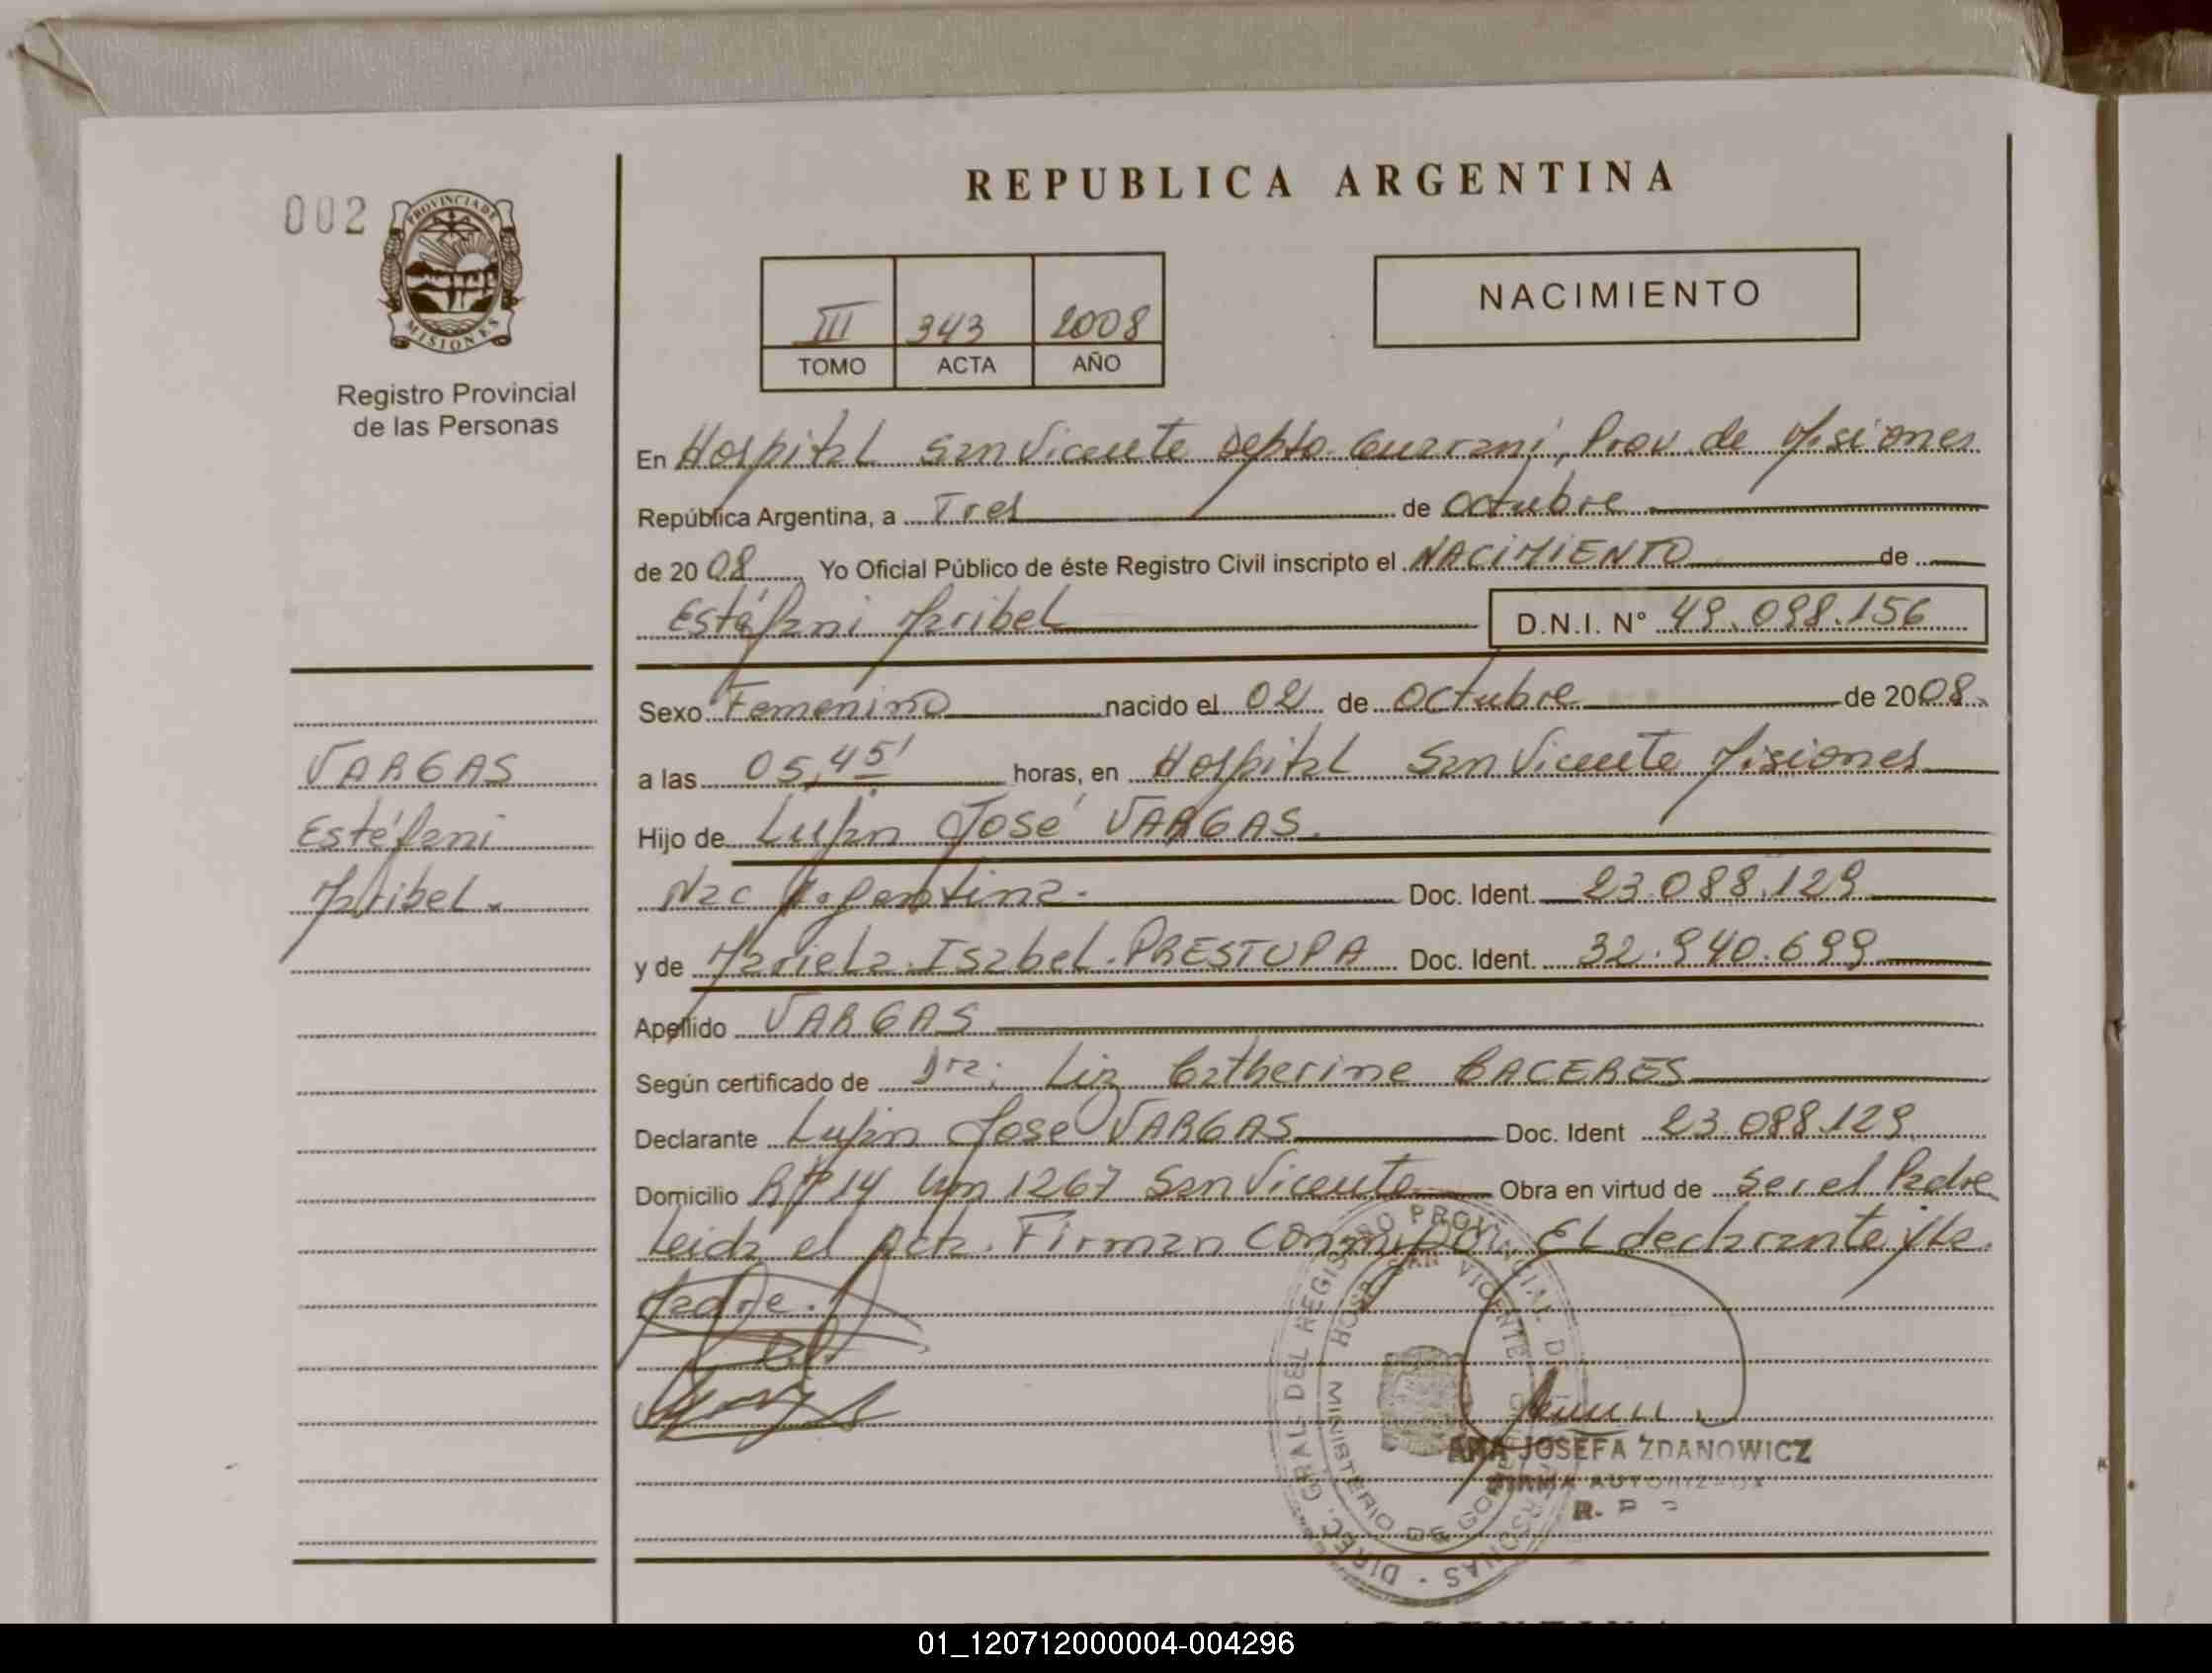 002
PROVINCIA DE
MISIONES
Registro Provincial
de las Personas
REPUBLICA ARGENTINA
III 343 2008
TOMO ACTA AÑO
NACIMIENTO
En Hospital San Vicente Depto. Guarani, Prov. de Misiones
República Argentina, a Tres de Octubre
de 2008 Yo Oficial Público de éste Registro Civil inscripto el NACIMIENTO de
Estéfani Maribel D.N.I. N° 49.098.156
Sexo Femenino nacido el 02 de Octubre de 2008.
a las 05,45' horas, en Hospital San Vicente Misiones
Hijo de Luján José VARGAS.
Nac Argentina. Doc. Ident. 23.088.129
y de Mariela Isabel PRESTUPA Doc. Ident. 32.940.699
Apellido VARGAS
Según certificado de Dra: Liz Catherine CACERES
Declarante Luján José VARGAS Doc. Ident 23.088.129
Domicilio RN 14 Km 1267 San Vicente Obra en virtud de ser el Padre
Leida el Acta. Firman Conmigo. El declarante y la
Madre.
VARGAS
Estéfani
Maribel.
DIREC. GRAL. DEL REGISTRO PROVINCIAL DE PERSONAS
HOSP. SAN VICENTE
MINISTERIO DE GOBIERNO
ANA JOSEFA ZDANOWICZ
FIRMA AUTORIZADA
R. P.
01_120712000004-004296